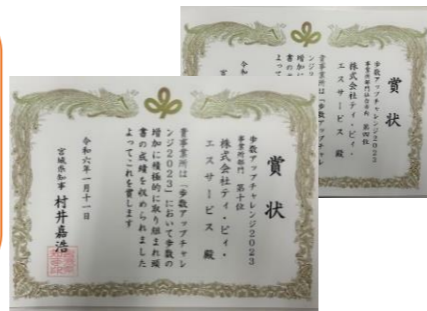 賞状
歩数アップチャレンジ2023
事業所部門 第十位
株式会社ティ・ビィ・
エスサービス 殿
貴事業所は「歩数アップチャレ
ンジ2023」において歩数の
増加に積極的に取り組まれ頭
書の成績を収められました
よってこれを賞します
令和六年一月十一日
宮城県知事 村井嘉浩
賞状
歩数アップチャレンジ2023
第四位
株式会社ティ・ビィ・
エスサービス 殿
貴事業所は「歩数アップチャレ
ンジ2
増加に
書の成
よって
令和
宮